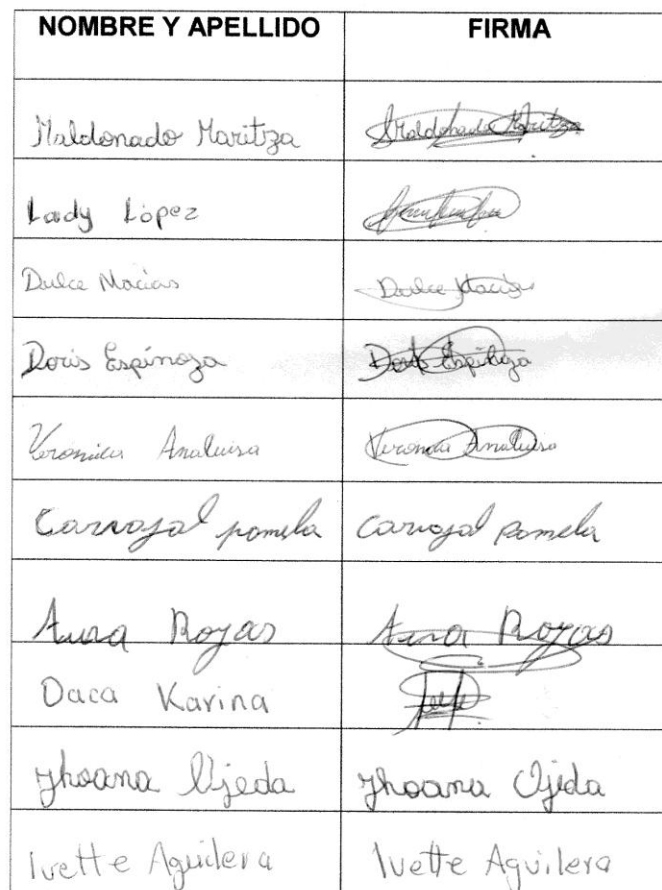 NOMBRE Y APELLIDO FIRMA
Maldonado Maritza Maldonado Maritza
Lady López
Dulce Macias Dulce Macias
Doris Espinoza Doris Espinoza
Veronica Analuisa Veronica Analuisa
Carvajal pamela Carvajal Pamela
Aura Rojas Aura Rojas
Daca Karina
Jhoana Ojeda Jhoana Ojeda
Ivette Aguilera Ivette Aguilera